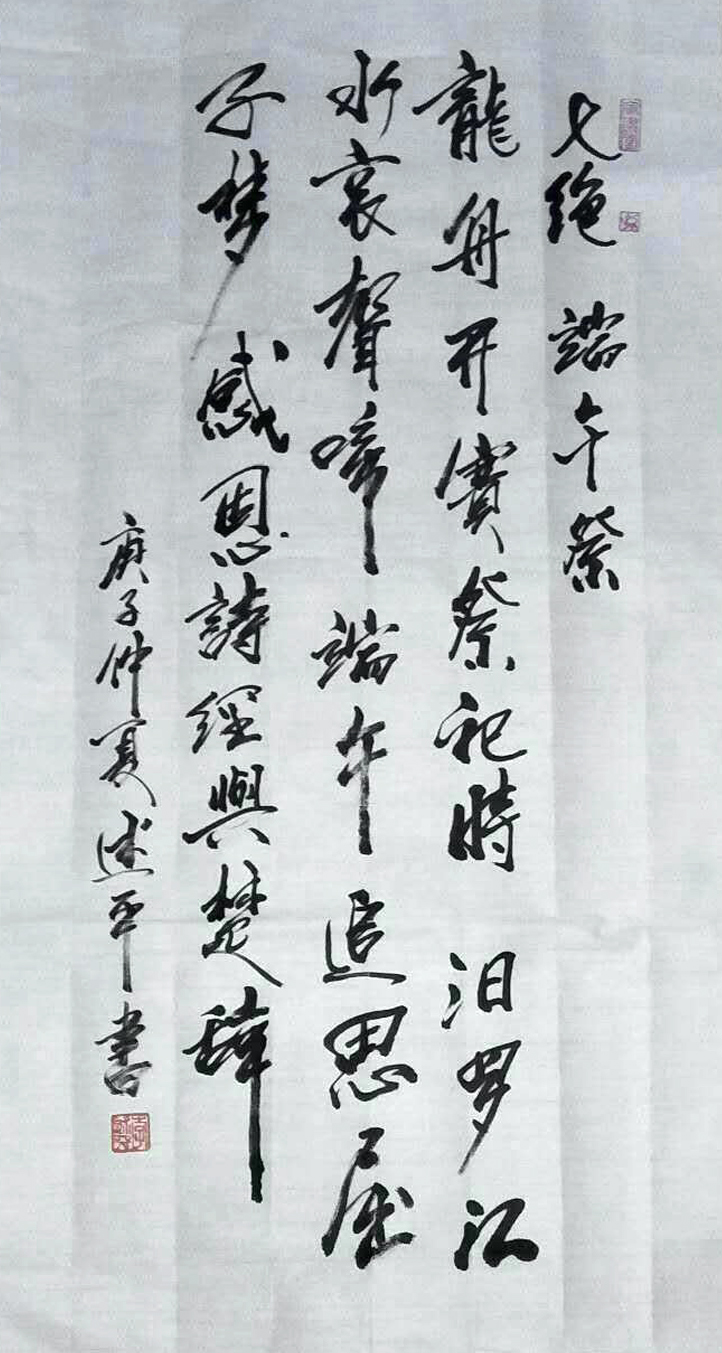 七绝 端午祭
龍舟开賽祭祀時 汨罗江
水哀聲啼 端午追思屈
子梦 感恩詩經與楚辞
庚子仲夏述平書